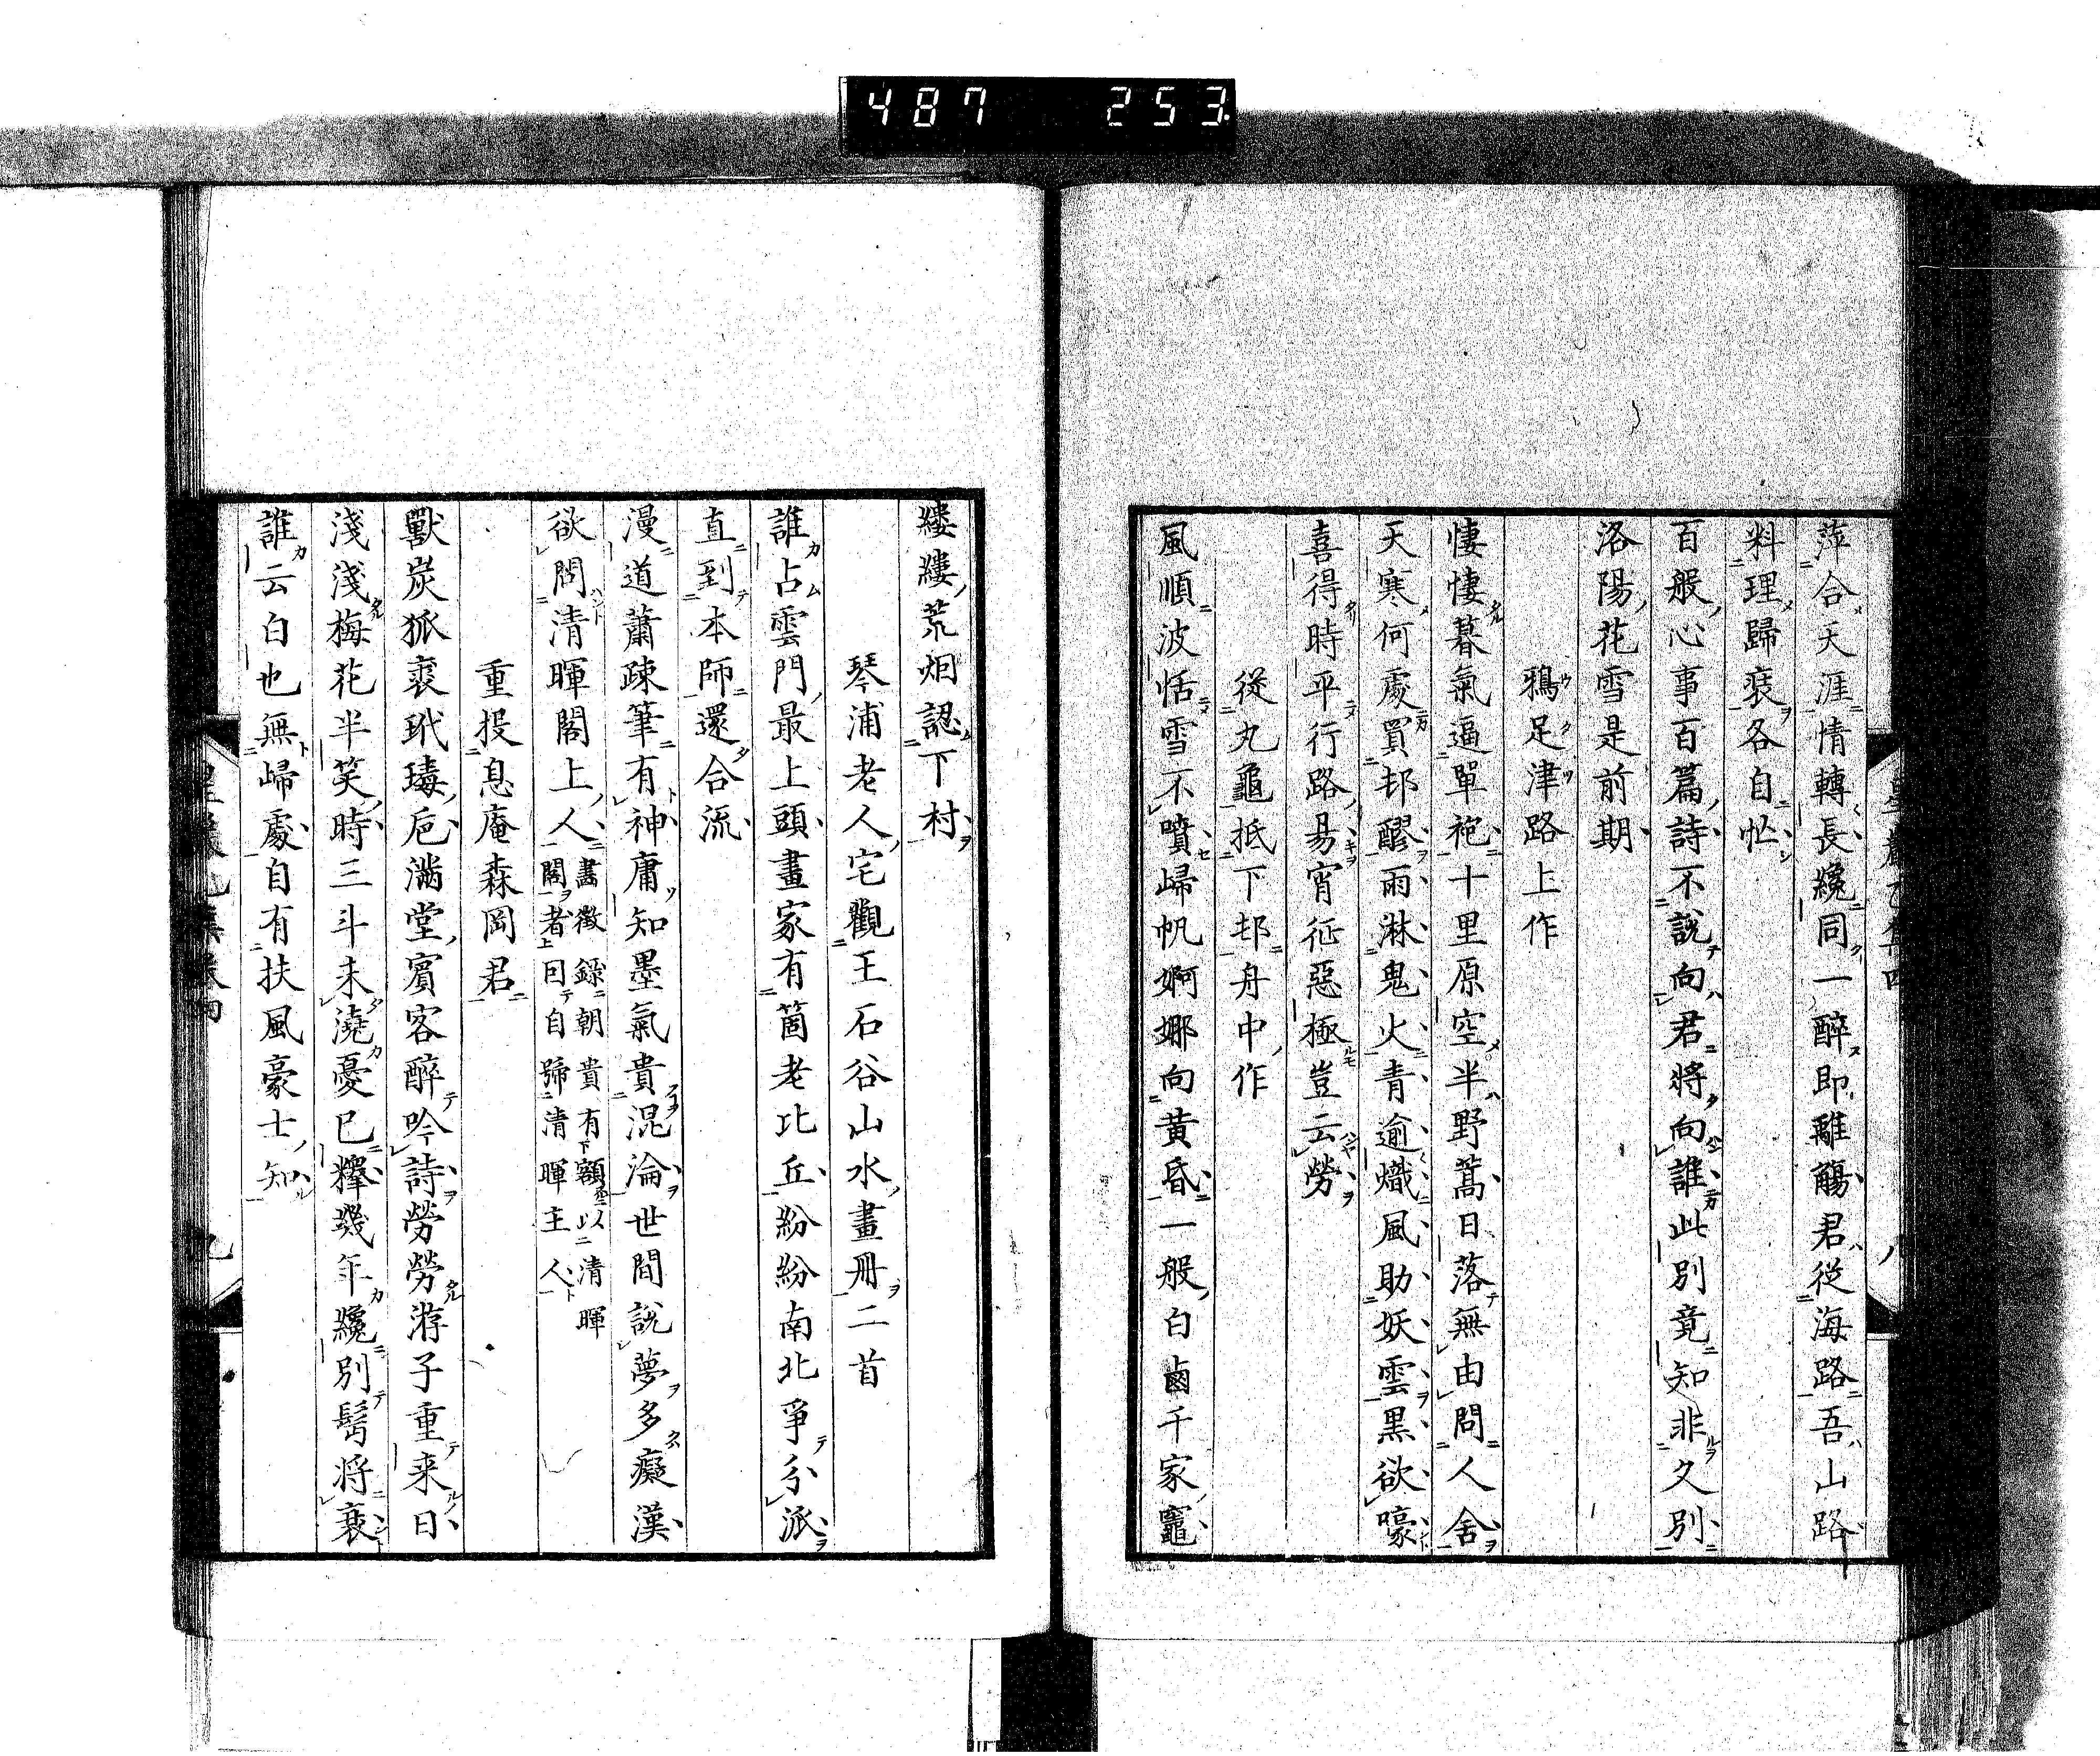 487 253
萍合天涯情轉長纔同一醉即離觴君從海路吾山路
料理歸裝各自忙
百般心事百篇詩不說向君將向誰此別竟知非久別
洛陽花雪是前期
鴉足津路上作
悽悽暮氣逼單袍十里原空半野蒿日落無由問人舍
天寒何處買邨醪雨淋鬼火青逾熾風助妖雲黑欲嚎
喜得時平行路易宵征惡極豈云勞
從丸龜抵下邨舟中作
風順波恬雪不噴歸帆婀娜向黃昏一般白鹵千家竈
縷縷荒烟認下村
琴浦老人宅觀王石谷山水畫冊二首
誰占雲門最上頭畫家有箇老比丘紛紛南北爭分派
直到本師還合流
漫道蕭疎筆有神庸知墨氣貴混淪世間說夢多癡漢
欲問清暉閣上人畫徵錄朝貴有額以清暉
閣者曰自號清暉主人
重投息庵森岡君
獸炭狐裘玳瑇巵滿堂賓客醉吟詩勞勞游子重来日
淺淺梅花半笑時三斗未澆憂已釋幾年纔別髩將衰
誰云白也無歸處自有扶風豪士知